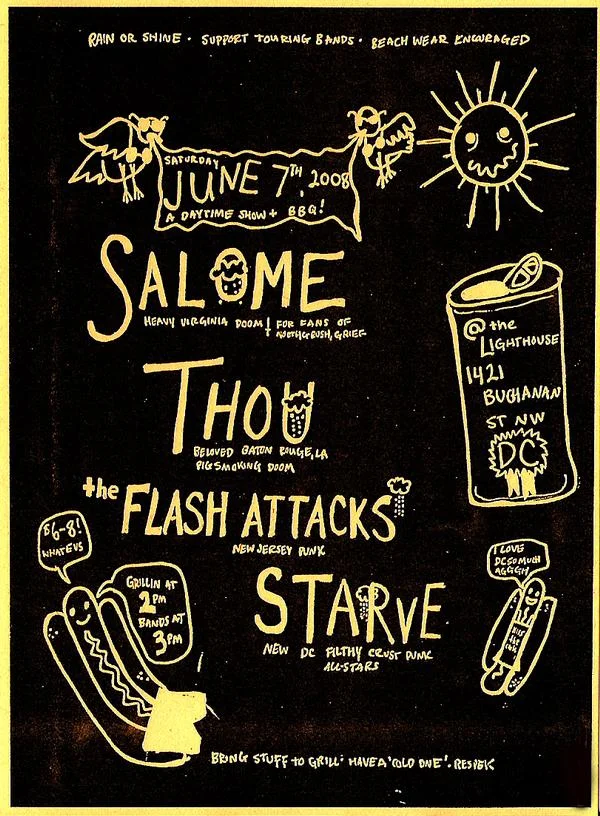 RAIN OR SHINE · SUPPORT TOURING BANDS · BEACH WEAR ENCOURAGED
SATURDAY
JUNE 7TH, 2008
A DAYTIME SHOW + BBQ!
SALOME
HEAVY VIRGINIA DOOM! FOR FANS OF
NOOTHGRUSH, GRIEF
@ the
LIGHTHOUSE
1421
BUCHANAN
ST NW
DC
THOU
BELOVED BATON ROUGE, LA
PIGSMOKING DOOM
the FLASH ATTACKS
NEW JERSEY PUNK
$6-8!
WHATEVS
GRILLIN AT
2PM
BANDS AT
3PM
STARVE
NEW DC FILTHY CRUST PUNK
ALL-STARS
I LOVE
DC SO MUCH
AGGGH
BRING STUFF TO GRILL· HAVE A 'COLD ONE'. RESPEK